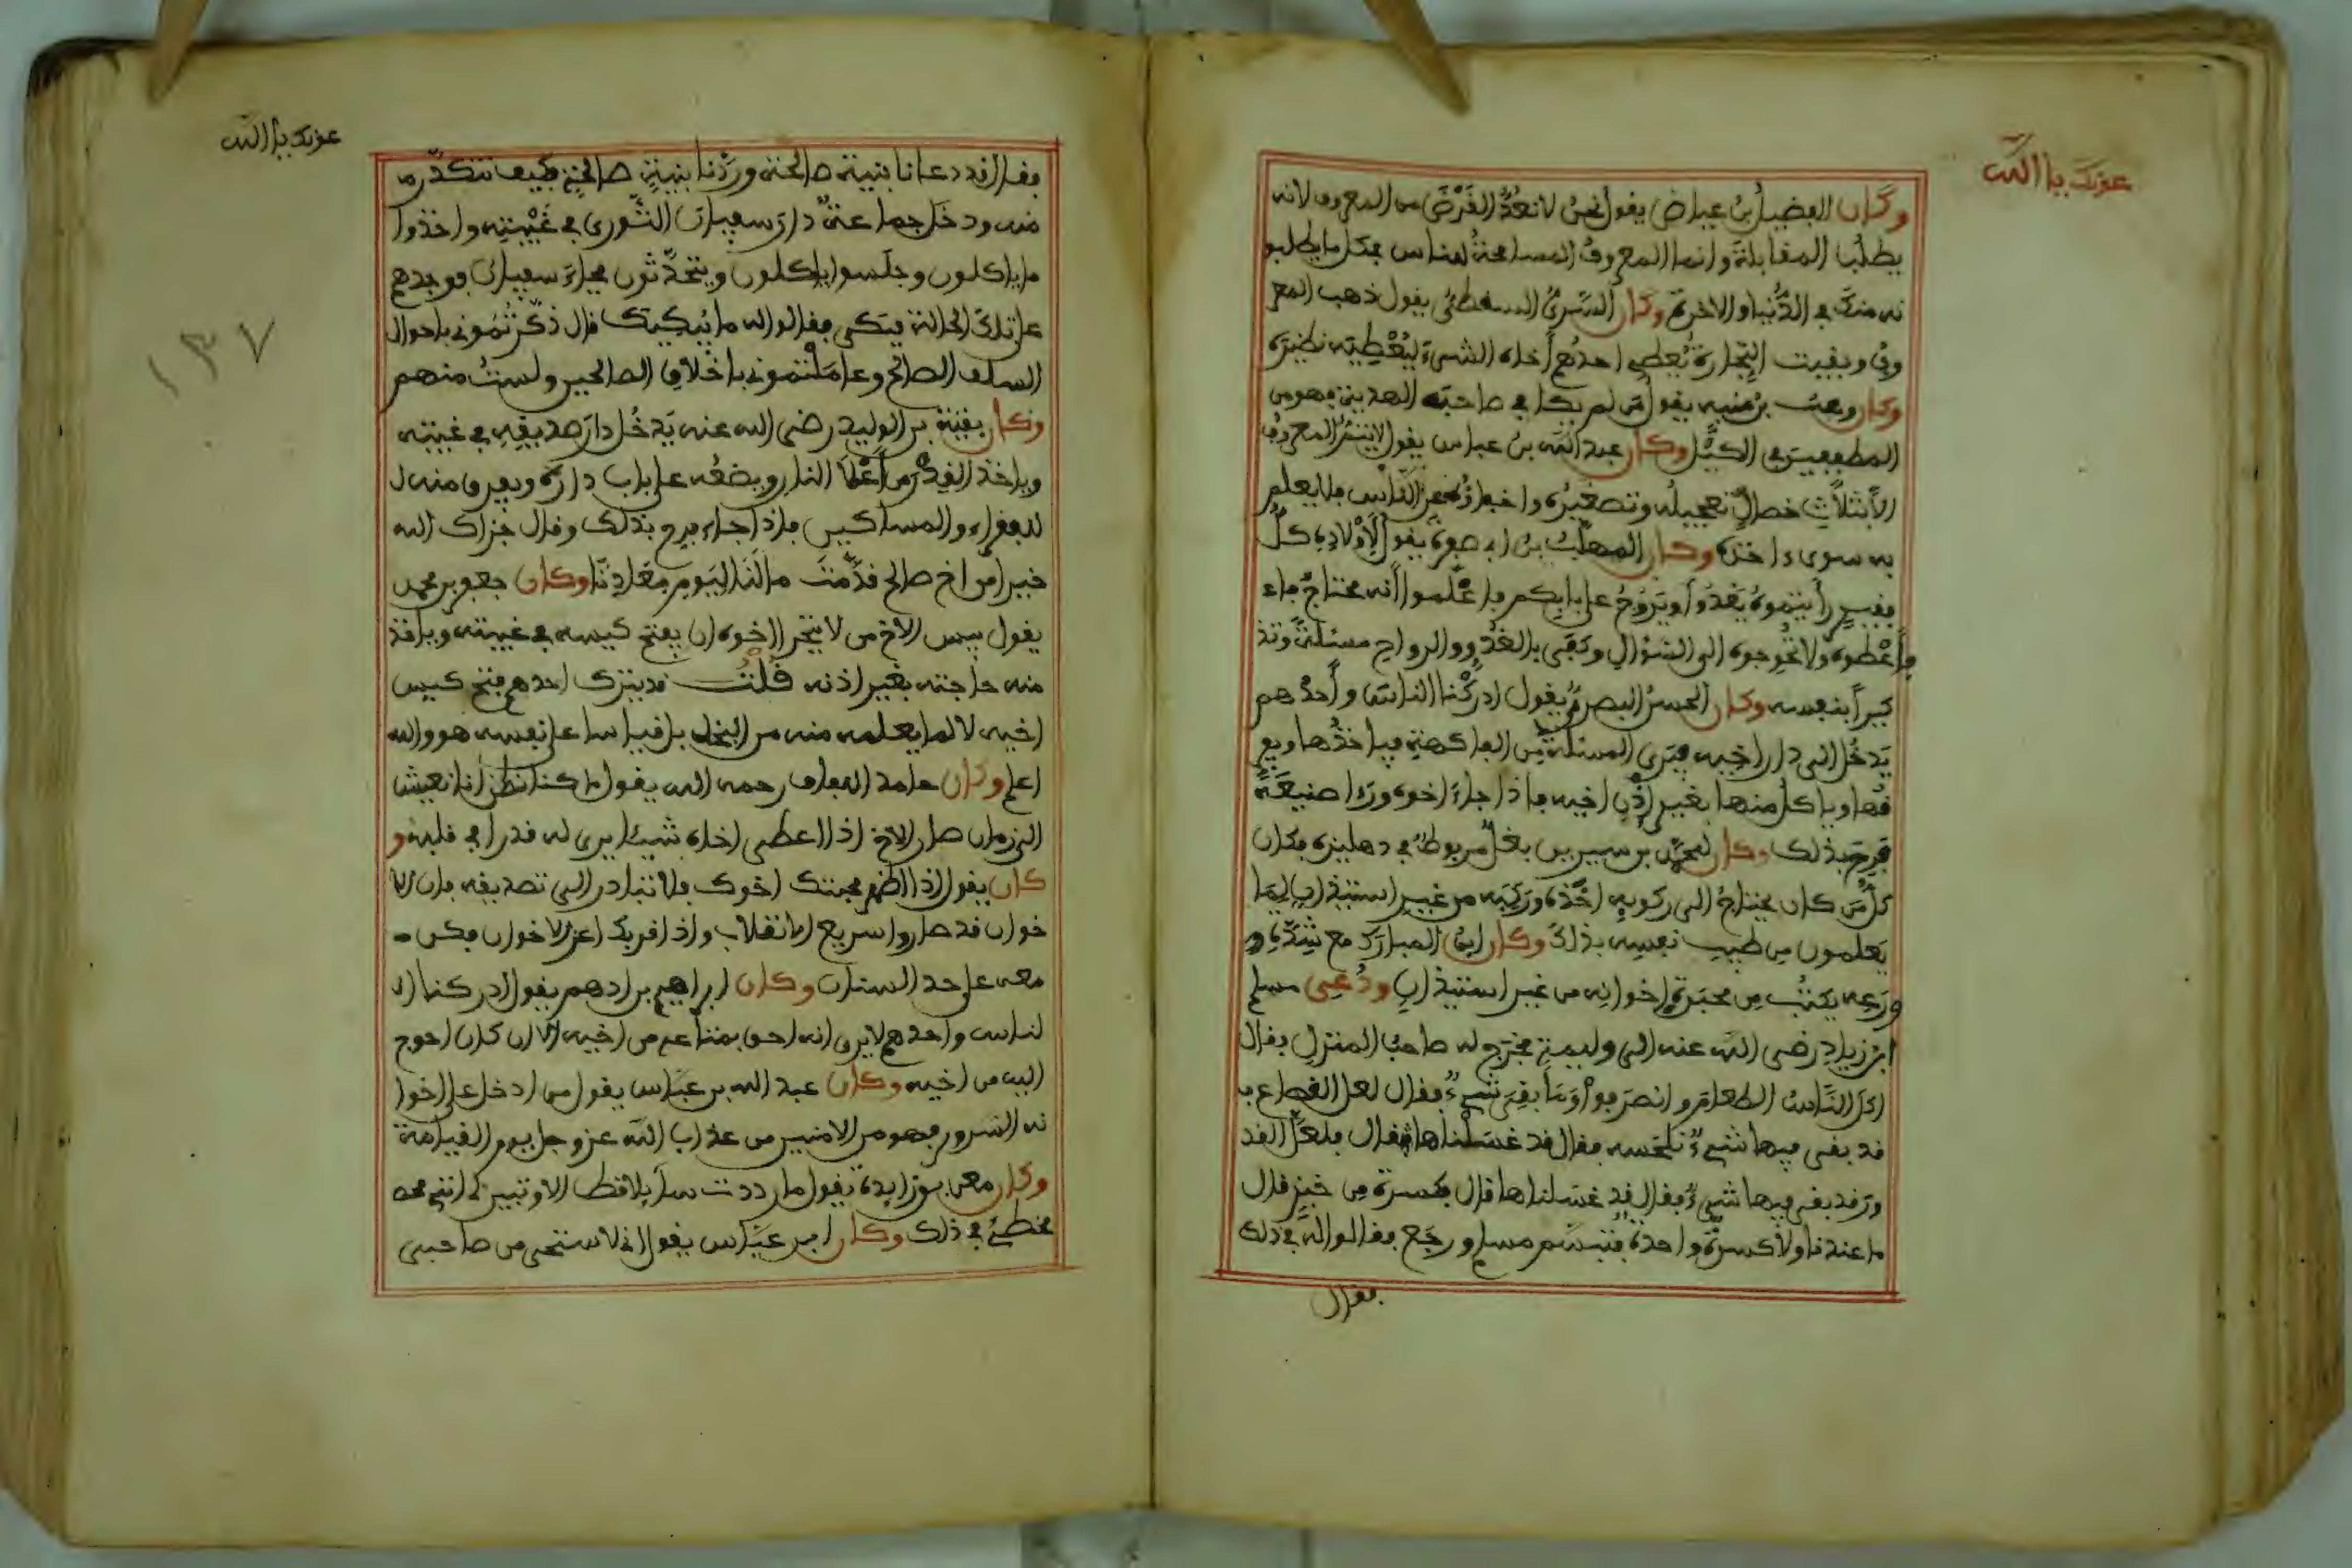 عونك يا الله
وكان الفضيل بن عياض يقول نحن لا نعدّ القرض من المعروف لانه
يطلب المقابلة وانما المعروف المسامحة للناس بكل ما يطلبو
نه منك في الدنيا والاخرة وكان السّريّ السقطي يقول ذهب المعر
وف وبقيت التجارة يعطي احدهم أخاه الشيء ليعطيه نظيره
وكان وهب بن منبه يقول من لم يكا في صاحبه الهدية فهو من
المطففين في الكيل وكان عبد الله بن عباس يقول لا يتم المعروف
الا بثلاث خصال تعجيله وتصغيره واخفاؤه عن الناس فلا يعلم
به سوى ءاخذه وكان المهلب بن ابي صفرة يقول لأولاده كلّ
فقير رأيتموه يغدوا ويروح على بابكم فاعلموا أنه محتاج جاء
فأعطوه ولا تحوجوه الى السؤال وكفى بالغدو والرواح مسئلة وتذ
كيرا بنفسه وكان الحسن البصري يقول ادركنا الناس وأحدهم
يدخل الى دار اخيه فيرى السلة من الفاكهة فياخذها ويفر
قها وياكل منها بغير إذن اخيه فاذا جاء اخوه ورءا صنيعه
فرح بذلك وكان لمحمد بن سيرين بغل مربوط في دهليزه فكان
كل من كان يحتاج الى ركوبه اخذه وركبه من غير استيذان لما
يعلمون من طيب نفسه بذلك وكان ابن المبارك مع شدة و
ورعه يكتب من محبرة اخوانه من غير استيذان ودعي مسلم
ابن زياد رضي الله عنه الى وليمة فخرج له صاحب المنزل فقال
اكل الناس الطعام وانصرفوا وما بقي شيء فقال لعل القصاع
قد بقي فيها شيء نلحسه فقال قد غسلناها فقال فلعل القد
ور قد بقي فيها شيء فقال قد غسلناها قال فكسرة من خبز قال
ما عندنا ولا كسرة واحدة فتبسم مسلم ورجع فقالوا له في ذلك
فقال
عونك يا الله
١٣٧
فقال قد دعانا بنية صالحة وردّنا بنية صالحة فكيف نتكدّر م
منه ودخل جماعة دار سفيان الثوري في غيبته واخذوا
ما ياكلون وجلسوا ياكلون ويتحدّثون فجاء سفيان فوجدهم
على تلك الحالة فبكى فقالوا له ما يبكيك قال ذكّرتموني باحوال
السلف الصالح وعاملتموني باخلاق الصالحين ولست منهم
وكان بقية بن الوليد رضي الله عنه يدخل دار صديقه في غيبته
وياخذ القدر من أعلا النار ويضعه على باب داره ويفرق منه ل
للفقراء والمساكين فاذا جاء فرح بذلك وقال جزاك الله
خيرا من اخ صالح قدّمت ما لنا اليوم معادنا وكان جعفر بن محمد
يقول بيس الاخ من لا يتجرا اخوه ان يفتح كيسه في غيبته وياخذ
منه حاجته بغير اذنه قلت قد يترك احدهم فتح كيس
اخيه لا لما يعلمه منه من البخل بل قياسا على نفسه هو والله
اعلم وكان حامد اللفاف رحمه الله يقول ما كنا نظن أنا نعيش ا
لى زمان صار الاخ اذا اعطى اخاه شيئا يرى له قدرا في قلبه و
كان يقول اذا اظهر محبتك اخوك فلا تبادر الى تصديقه فان الا
خوان قد صاروا سريع الانقلاب واذا قربك اعز الاخوان فكن
معه على حد السنان وكان ابراهيم بن ادهم يقول ادركنا ال
لناس واحدهم لا يرى انه احق بمتاعه من اخيه الا ان كان احوج
اليه من اخيه وكان عبد الله بن عباس يقول من ادخل على اخوا
نه السرور فهو من الامنين من عذاب الله عز وجل يوم القيامة
وكان معن بن زايدة يقول ما رددت سايلا قط الا وتبين لي انني
مخطئ في ذلك وكان ابن عباس يقول اني لاستحي من صاحبي